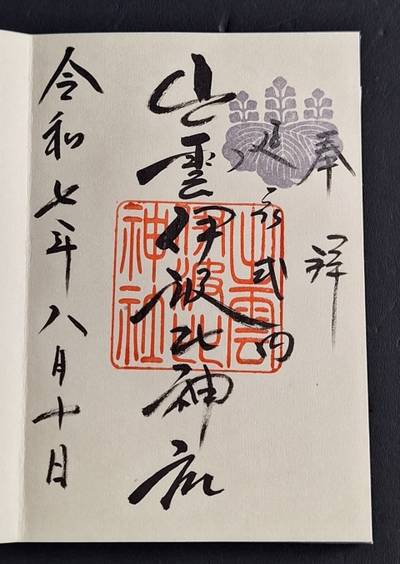 奉拝
延喜式内
出雲伊波比神社
出雲
伊波比
神社
令和七年八月十日